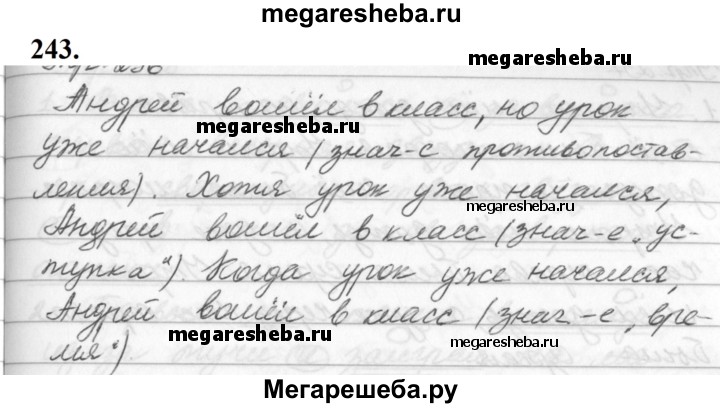 megaresheba.ru
243.
Андрей вошёл в класс, но урок
megaresheba.ru
уже начался (знач-е противопостав-
megaresheba.ru
ления). Хотя урок уже начался,
megaresheba.ru
Андрей вошёл в класс (знач-е „ус-
тупка"). Когда урок уже начался,
Андрей вошёл в класс (знач-е „вре-
megaresheba.ru
megaresheba.ru
мя").
Мегарешеба.ру